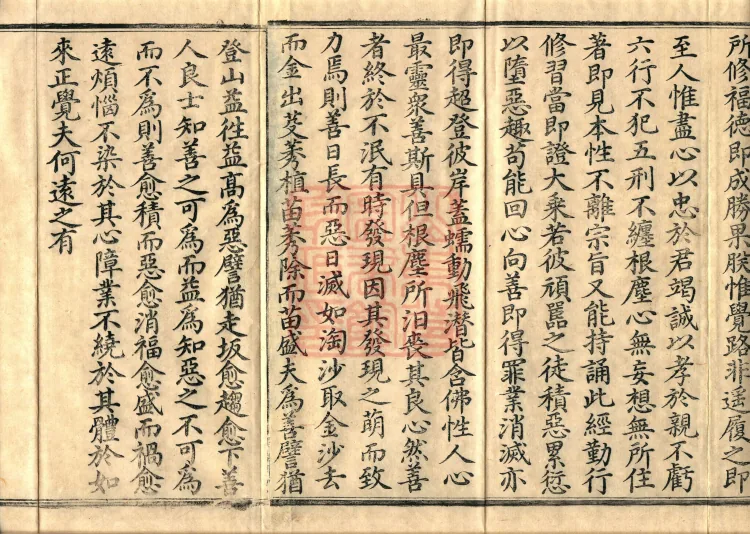 所修福德即成勝果朕惟覺路非遥履之即
至人惟盡心以忠於君竭誠以孝於親不虧
六行不犯五刑不纏根塵心無妄想無所住
著即見本性不離宗旨又能持誦此經勤行
修習當即證大乘若彼頑嚚之徒積惡累愆
以墮惡趣苟能回心向善即得罪業消滅亦
即得超登彼岸蓋蠕動飛潜皆含佛性人心
最靈衆善斯具但根塵所汨喪其良心然善
者終於不泯有時發現因其發現之萌而致
力焉則善日長而惡日滅如淘沙取金沙去
而金出芟莠植苗莠除而苗盛夫為善譬猶
登山益徃益髙為惡譬猶走坂愈趨愈下善
人良士知善之可為而益為知惡之不可為
而不為則善愈積而惡愈消福愈盛而禍愈
遠煩惱不染於其心障業不繞於其體於如
來正覺夫何遠之有